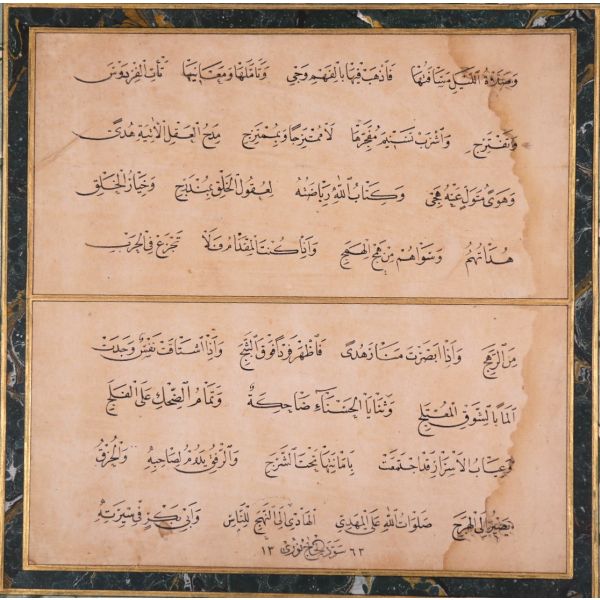 وصلاة الليل مسافتها فاذهب فيها بالفهم وجي وتأملها ومعانيها تأت الفردوس
وتفترج واشرب تسنيم مفجرها لا ممتزجا وبممتزج مدح العقل الآتيه هدى
وهوى متول عنه هجي وكتاب الله رياضته لعقول الخلق بمندرج وخيار الخلق
هداتهم وسواهم من همج الهمج واذا كنت المقدام فلا تجزع في الحرب
من الرهج واذا ابصرت منار هدى فاظهر فردا فوق الثبج واذا اشتاقت نفس وجدت
الما بالشوق المعتلج وثنايا الحسناء ضاحكة وتمام الضحك على الفلج
وعياب الاسرار قد اجتمعت بامانتها تحت الشرج والرفق يدوم لصاحبه والخرق
يصير الى الهرج صلوات الله على المهدي الهادي الى النهج للناس وابي بكر في سيرته
سود الحاج نوري ١٣ ٦٣